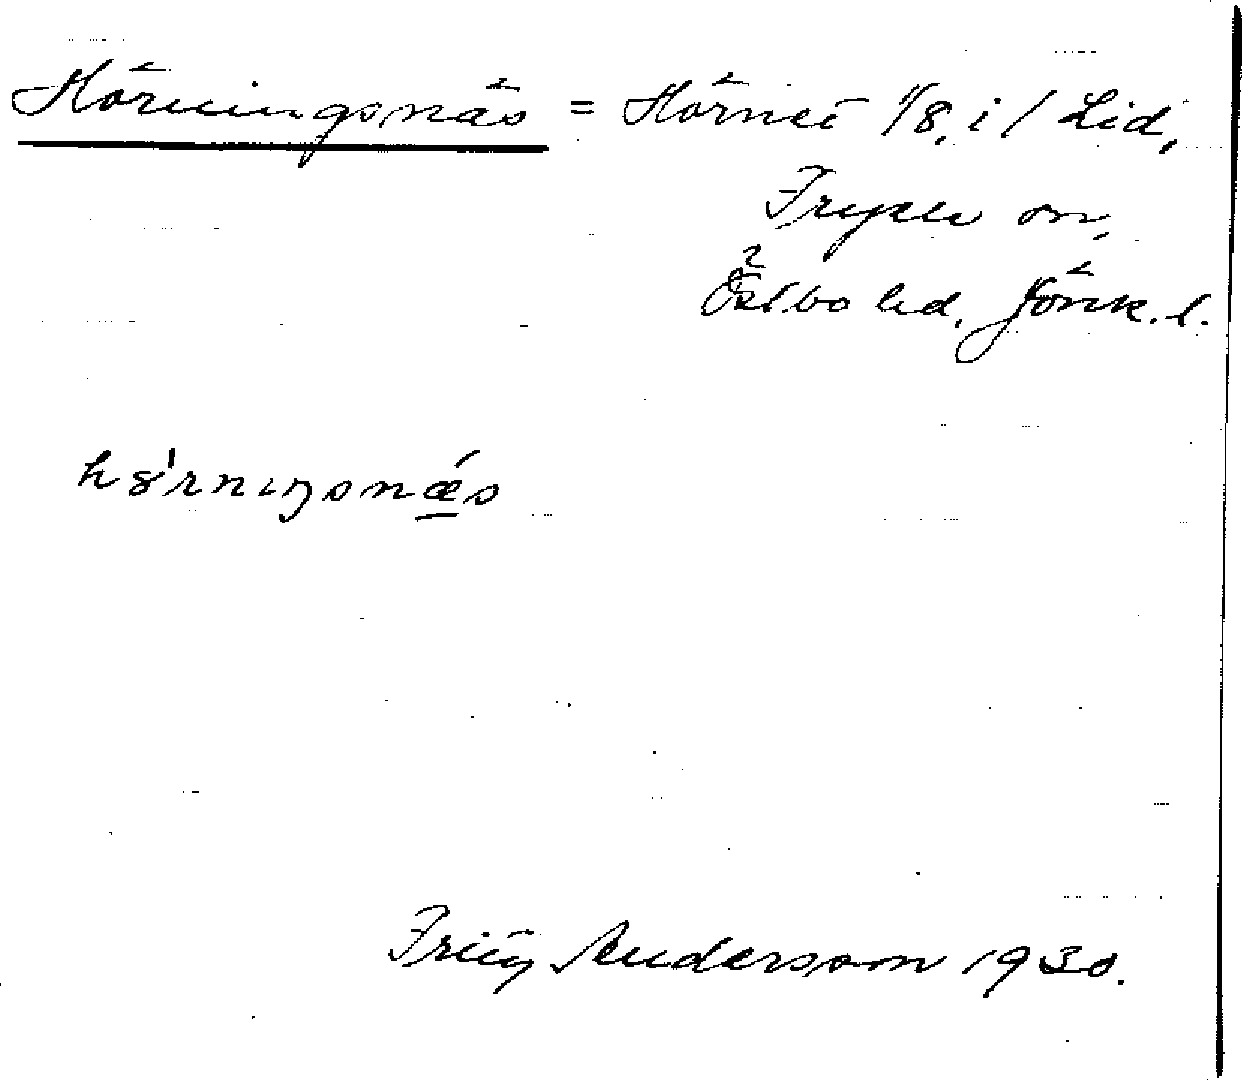 Hörningsnäs = Hörnet 1/8, i / Lid,
Fryele sn,
Östbo hd, Jönk. l.
hö'rnıŋsnǽs
Fritz Andersson 1930.